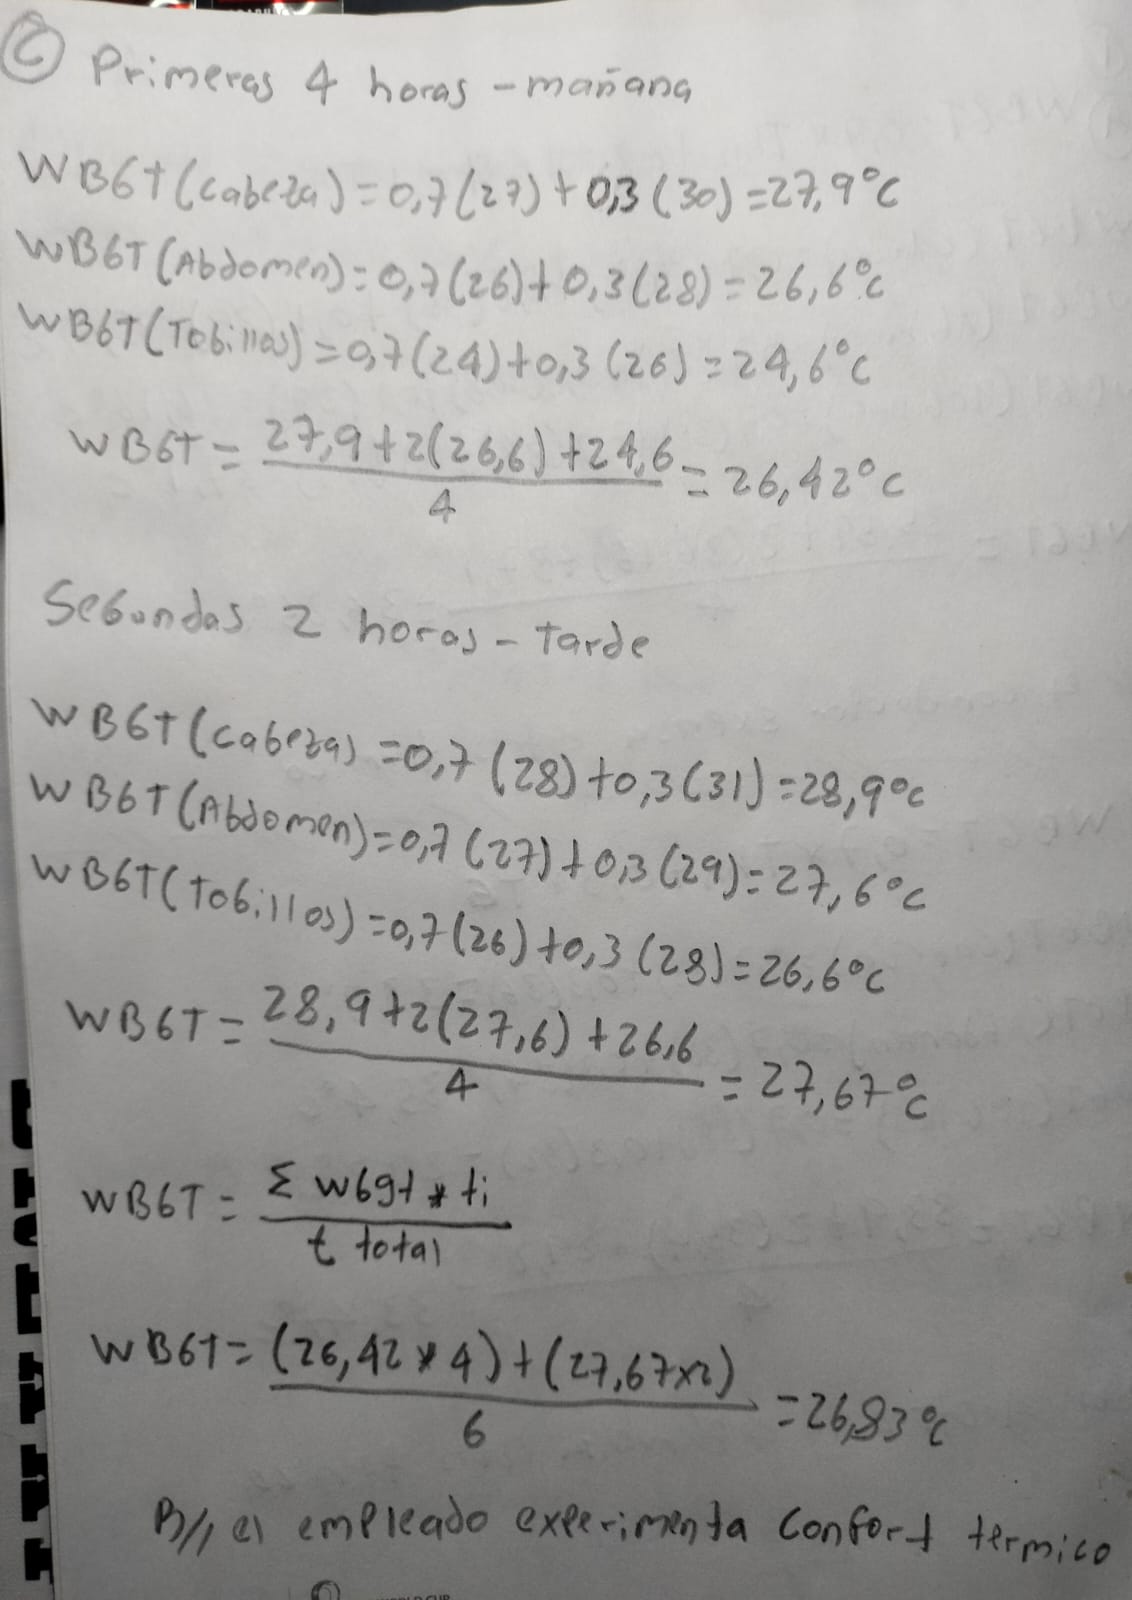 C Primeras 4 horas - mañana
WBGT (Cabeza) = 0,7 (27) + 0,3 (30) = 27,9°C
WBGT (Abdomen) = 0,7 (26) + 0,3 (28) = 26,6°C
WBGT (Tobillos) = 0,7 (24) + 0,3 (26) = 24,6°C
WBGT = 27,9 + 2(26,6) + 24,6 = 26,42°C
4
Segundas 2 horas - tarde
WBGT (cabeza) = 0,7 (28) + 0,3 (31) = 28,9°C
WBGT (Abdomen) = 0,7 (27) + 0,3 (29) = 27,6°C
WBGT (Tobillos) = 0,7 (26) + 0,3 (28) = 26,6°C
WBGT = 28,9 + 2(27,6) + 26,6 = 27,67°C
4
WBGT = Σ wbgt * ti
t total
WBGT = (26,42 * 4) + (27,67 x 2) = 26,83°C
6
R// el empleado experimenta Confort termico